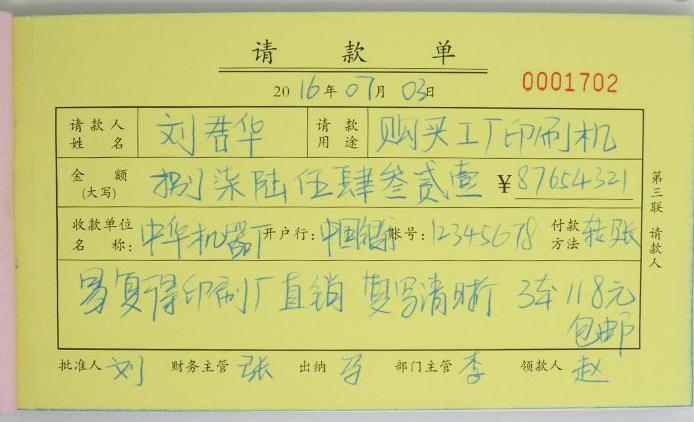 请款单
2016年07月03日 0001702
请款人姓名 刘君华 请款用途 购买工厂印刷机
金额(大写) 捌柒陆伍肆叁贰壹 ¥87654321
收款单位名称: 中华机器厂 开户行: 中国银行 帐号: 12345678 付款方法 转张
易复得印刷厂直销 复写清晰 3本118元
包邮
批准人 刘 财务主管 张 出纳 马 部门主管 李 领款人 赵
第三联 请款人